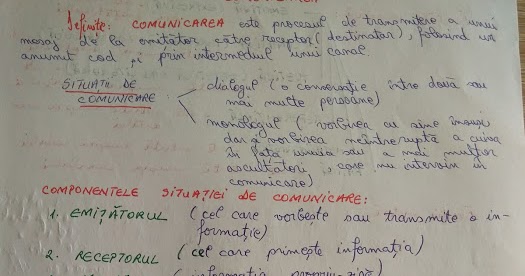 Definiție: COMUNICAREA este procesul de transmitere a unui
mesaj de la emițător către receptor (destinatar), folosind un
anumit cod și prin intermediul unui canal.
SITUAȚII DE COMUNICARE:
dialogul (o conversație între două sau
mai multe persoane)
monologul (vorbirea cu sine însuși
dar și vorbirea neîntreruptă a cuiva
în fața unuia sau a mai multor
ascultători, care nu intervin în
comunicare)
COMPONENTELE SITUAȚIEI DE COMUNICARE:
1. EMIȚĂTORUL (cel care vorbește sau transmite o in-
formație)
2. RECEPTORUL (cel care primește informația)
(informația propriu-zisă)